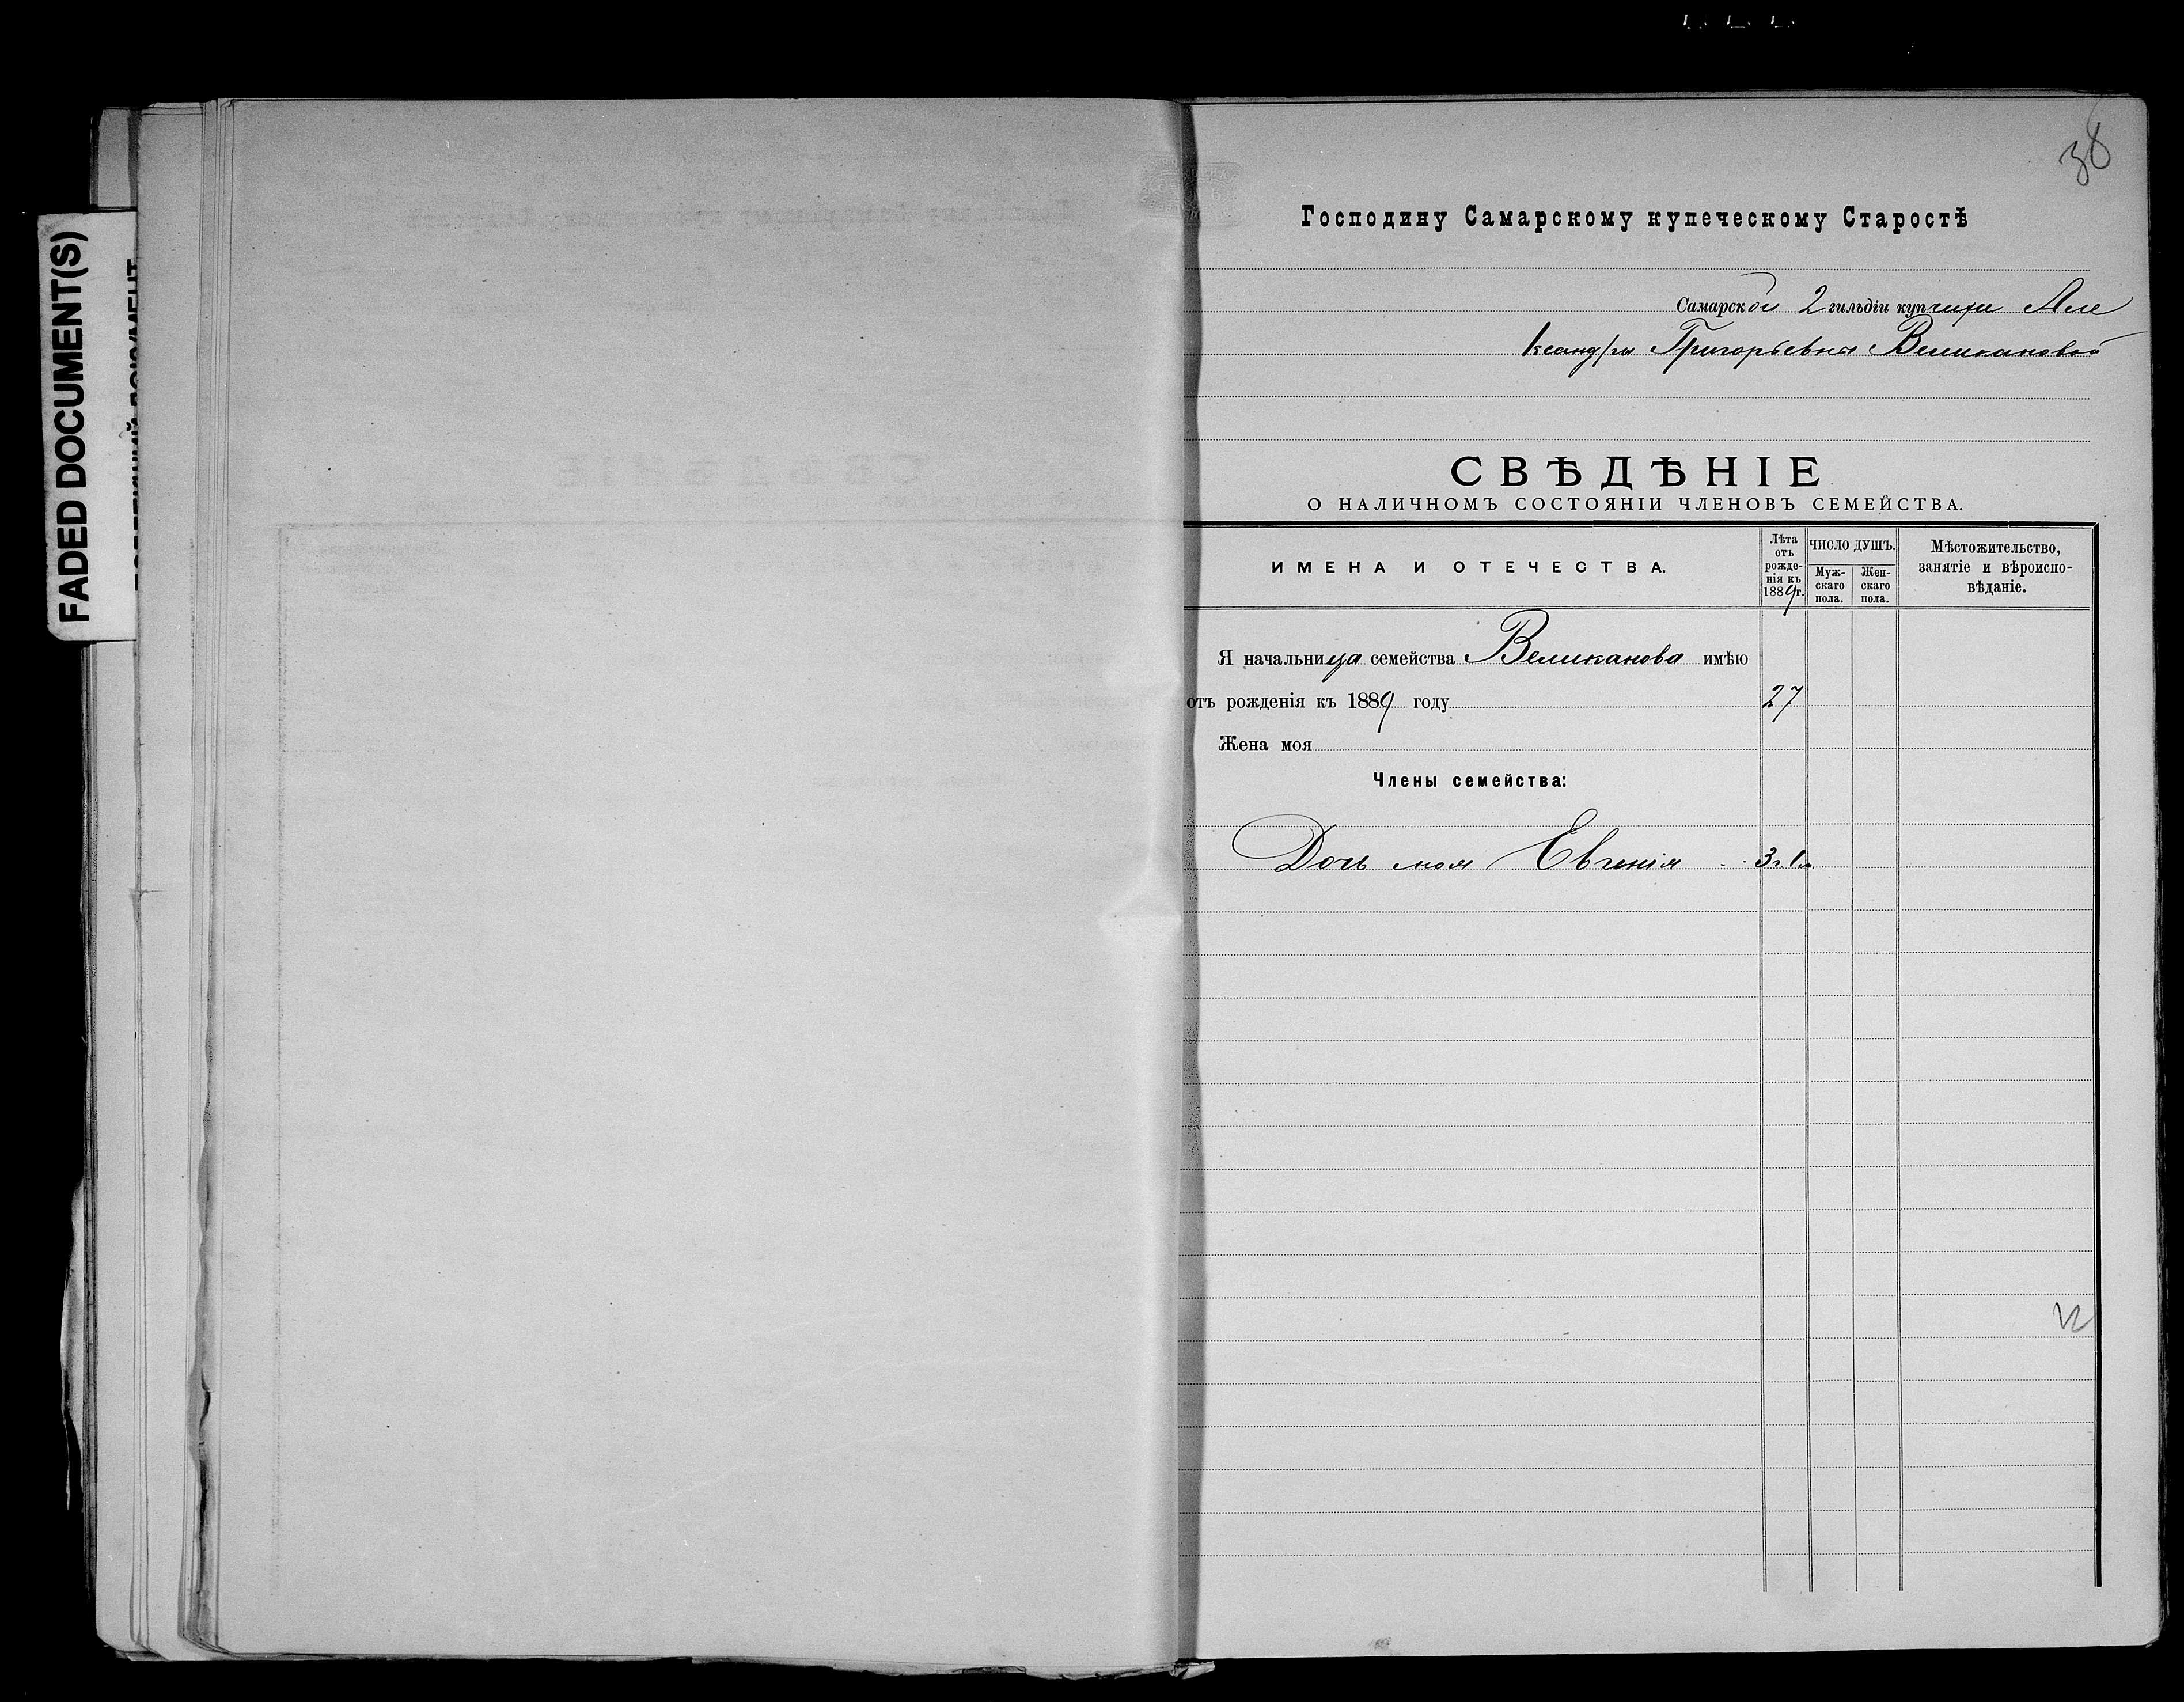 FADED DOCUMENT(S)
38
Господину Самарскому купеческому Старостѣ
Самарской 2 гильдіи купчихи Але
ксандры Григорьевна Великановой
СВѢДѢНІЕ
О НАЛИЧНОМЪ СОСТОЯНІИ ЧЛЕНОВЪ СЕМЕЙСТВА.
ИМЕНА И ОТЕЧЕСТВА.
Лѣта
отъ
рожде-
нія къ
1889 г.
ЧИСЛО ДУШЪ.
Муж-
скаго
пола.
Жен-
скаго
пола.
Мѣстожительство,
занятіе и вѣроиспо-
вѣданіе.
Я начальница семейства Великанова имѣю
отъ рожденія къ 1889 году 27
Жена моя
Члены семейства:
Дочь моя Евгенія 3 г. 1 м.